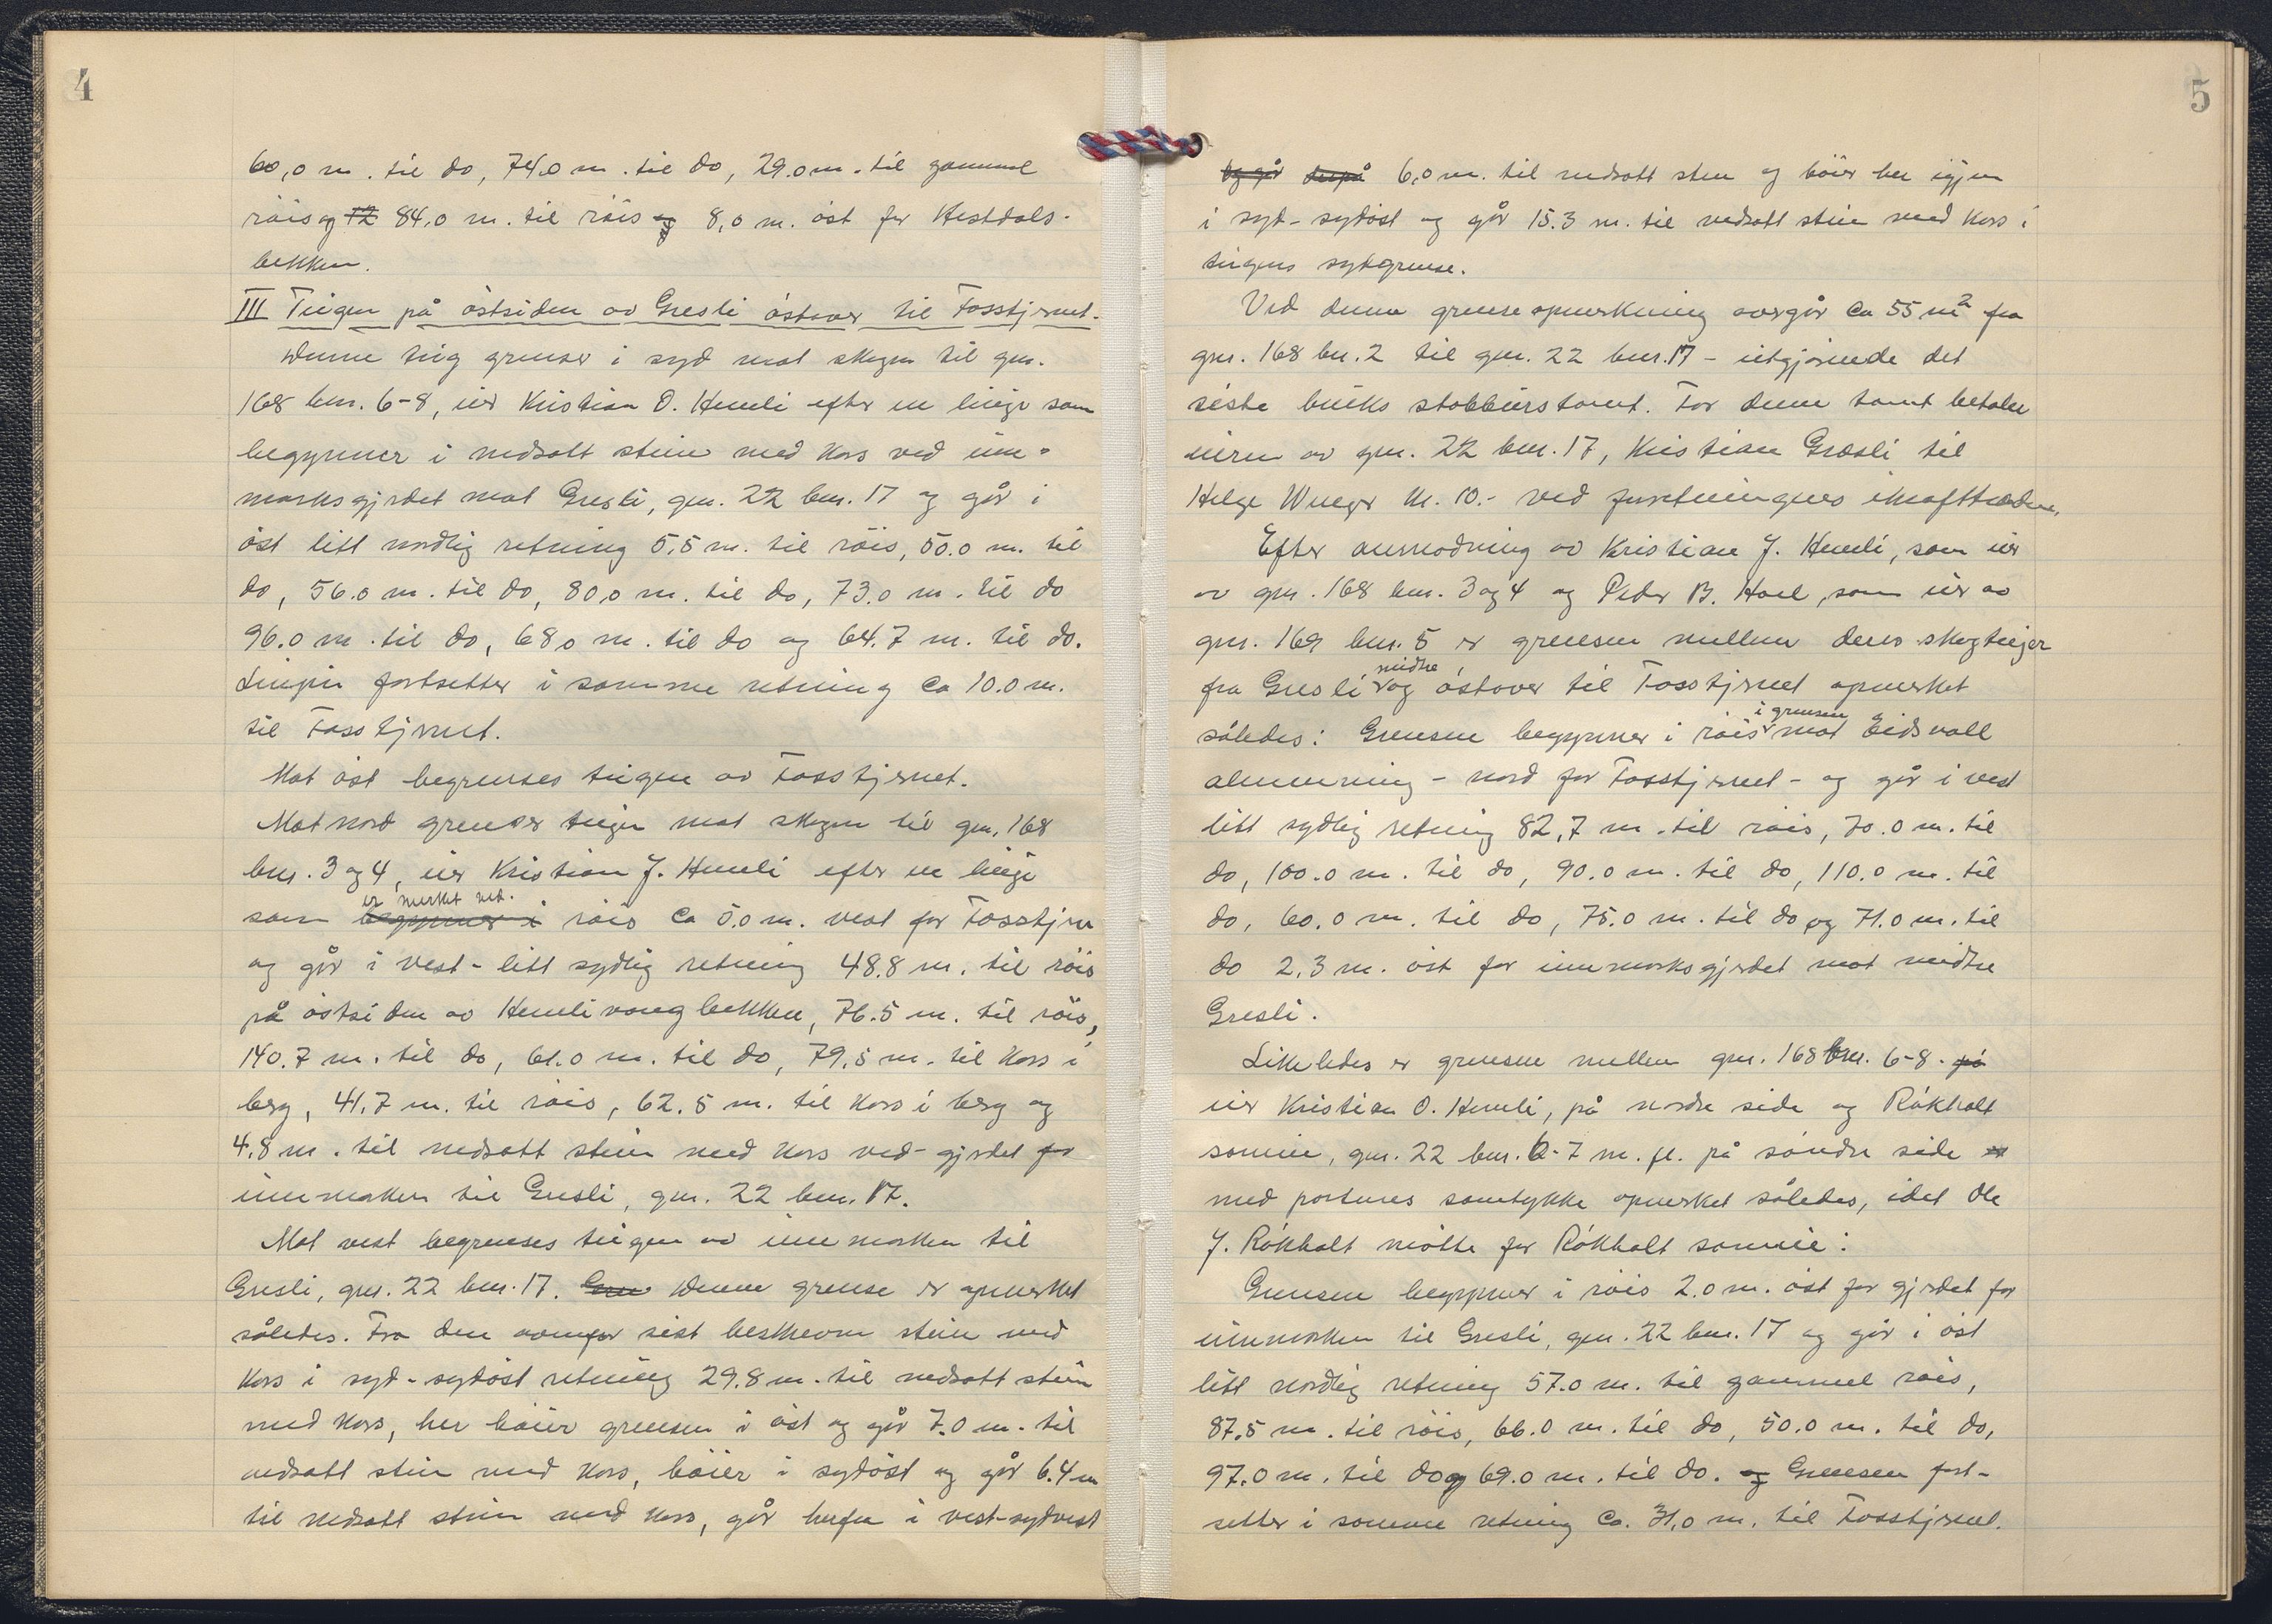 4
60,0 m. til do, 74,0 m. til do, 29.0 m. til gammel
röis og 12 84,0 m. til röis og 8,0 m. öst for Hestdals-
bekken.
III Teigen på östsiden av Gresli östover til Fosstjernet.
Denne teig grenser i syd mot skogen til gnr.
168 bnr. 6-8, eier Kristian O. Hemli efter en linje som
begynner i nedsatt stein med kors ved inn-
marksgjerdet mot Gresli, gnr. 22 bnr. 17 og går i
öst litt nordlig retning 5,5 m. til röis, 50.0 m. til
do, 56.0 m. til do, 80,0 m. til do, 73.0 m. til do
96.0 m. til do, 68,0 m. til do og 64.7 m. til do.
Linjen fortsetter i samme retning ca 10.0 m.
til Fosstjernet.
Mot öst begrenses teigen av Fosstjernet.
Mot nord grenser teigen mot skogen til gnr. 168
bnr. 3 og 4, eier Kristian J. Hemli efter en linje
er merket ved.
som begynner i röis ca 5.0 m. vest for Fosstjern
og går i vest-litt sydlig retning 48.8 m. til röis
på östsiden av Hemlivangbekken, 76.5 m. til röis,
140.7 m. til do, 61.0 m. til do, 79,5 m. til kors i
berg, 41,7 m. til röis, 62.5 m. til kors i berg og
4,8 m. til nedsatt stein med kors ved-gjerdet for
innmarken til Gresli, gnr. 22 bnr. 17.
Mot vest begrenses teigen av innmarken til
Gresli, gnr. 22 bnr. 17. Gren Denne grense er opmerket
således. Fra den ovenfor sist beskrevne stein med
kors i syd-sydöst retning 29.8 m. til nedsatt stein
med kors, her böier grensen i öst og går 7.0 m. til
nedsatt stein med kors, böier i sydöst og går 6.4 m
til nedsatt stein med kors, går herfra i vest-sydvest
5
og går derpå 6,0 m. til nedsatt sten og böier her igjen
i syd-sydöst og går 15.3 m. til nedsatt stein med kors i
teigens sydgrense.
Ved denne grenseopmerkning overgår ca 55 m² fra
gnr. 168 bnr. 2 til gnr. 22 bnr. 17 - utgjörende det
siste bruks stabburstomt. For denne tomt betaler
eieren av gnr. 22 bnr. 17, Kristian Græsli til
Helge Wenger kr. 10.- ved forretningens ikrafttræden.
Efter anmodning av Kristian J. Hemli, som eier
av gnr. 168 bnr. 3 og 4 og Peder B. Hoel, som eier av
gnr. 169 bnr. 5 er grensen mellem deres skogteiger
midtre
fra Gresli og östover til Fosstjernet opmerket
i grensen
således: Grensen begynner i röis mot Eidsvoll
almenning - nord for Fosstjernet - og går i vest
litt sydlig retning 82,7 m. til röis, 70.0 m. til
do, 100.0 m. til do, 90.0 m. til do, 110.0 m. til
do, 60.0 m. til do, 75.0 m. til do og 71.0 m. til
do 2,3 m. öst for innmarksgjerdet mot midtre
Gresli.
Likeledes er grensene mellem gnr. 168 bnr. 6-8. på
eier Kristian O. Hemli, på nordre side og Rökholt
sameie, gnr. 22 bnr. 6-7 m. fl. på söndre side er
med partenes samtykke opmerket således, idet Ole
J. Rökholt mötte for Rökholt sameie:
Grensen begynner i röis 2.0 m. öst for gjerdet for
innmarken til Gresli, gnr. 22 bnr. 17 og går i öst
litt nordlig retning 57.0 m. til gammel röis,
87.5 m. til röis, 66.0 m. til do, 50.0 m. til do,
97.0 m. til do og 69.0 m. til do. og Grensen fort-
setter i samme retning ca. 31,0 m. til Fosstjernet.